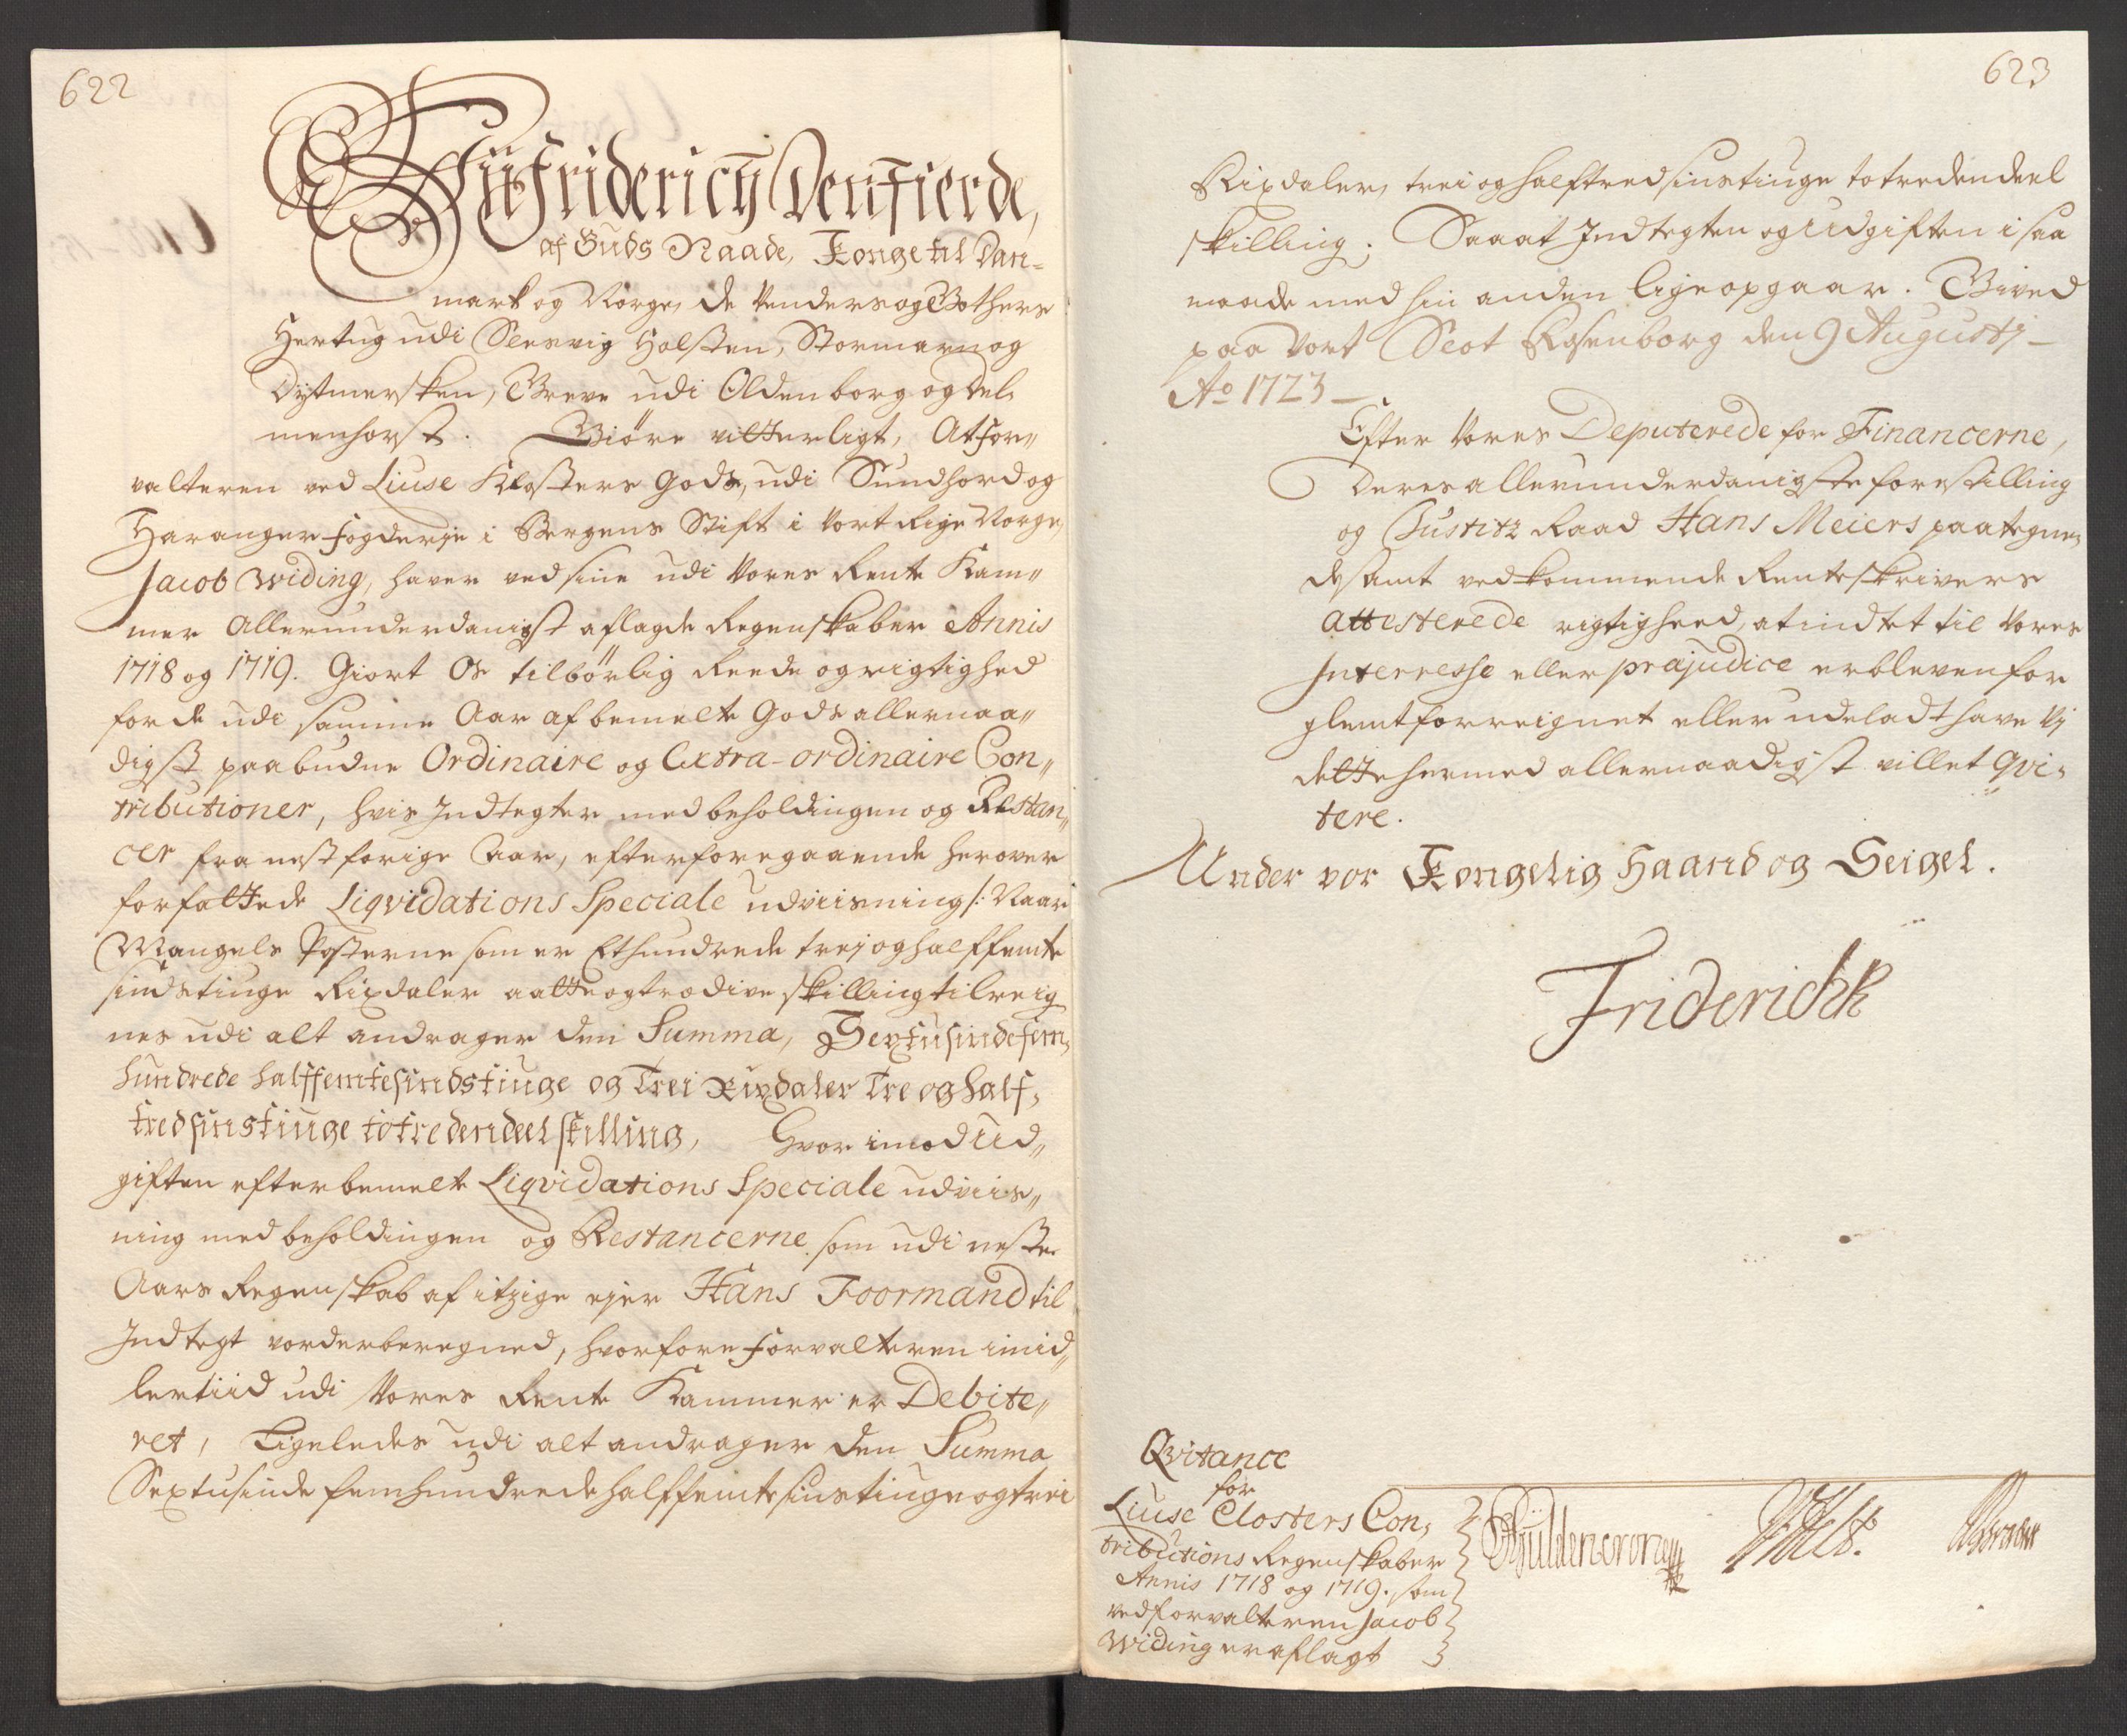 622
Wii Friderich Denfierde,
af Guds Naade, Konge til Dan-
mark og Norge, de Venders og Gothers
Hertug udi Slesvig Holsten, Stormarn og
Dytmersken, Greve udi Oldenborg og Del-
menhorst. Giøre vitterligt, At for„
valteren ved Liuse Klosters Gods, udi Sundhord og
Haranger fogderje i Bergens Stift i Vort Rige Norge,
Jacob Widing, haver ved sine udi Vores Rente Kam„
mer Allerunderdanigst aflagde Regenskaber Annis
1718 og 1719. Giort Os tilbørlig Reede og rigtighed
for de udi samme Aar af bemelte Gods allernaa„
digst paabudne Ordinaire og Extra-ordinaire Con„
tributioner, hvis Indtegter med beholdingen og Restan„
cer fra nest forige Aar, efter foregaaende herover
forfattede Liqvidations Speciale udviisning /: Naar
Mangels Posterne som er Ethundrede trej og halffemte
sindstiuge Rixdaler aatte og tredive skilling tilreig
nes udi alt andrager den Summa, Sextusinde fem,
hundrede halffemtesindstiuge og Trei Rixdaler Tre og half,
tredsinstiuge totredendeel skilling, Hvor imod Ud„
giften efter bemelte Liqvidations Speciale udviis„
ning med beholdingen og Restancerne som udi neste
Aars Regenskab af itzige ejer Hans Foormand til
Indtegt vorder beregned, hvorfore forvalteren imid„
lertiid udi Vores Rente Kammer er Debite„
ret, Ligeledes udi alt andrager den Summa
Sextusinde femhundrede halffemtesinstiuge og trei
623
Rixdaler, trei og halftredsinstiuge totredendeel
skilling. Saa at Indtegten og Udgiften i saa
maade med hin anden lige opgaar. Gived
paa Vort Slot Rosenborg den 9 Augustj
Ao 1723
Efter Vores Deputerede for Financerne,
Deres allerunderdanigste forestilling
og Justitz Raad Hans Meiers paategne,
de samt vedkommende Renteskrivers
attesterede rigtigheed, at indtet til Vores
Interresse eller præjudice er bleven for
glemt forreignet eller udeladt have Vj
dette hermed allernaadigst villet qvi,
tere.
Under vor Kongelig Haand og Seigel.
Friderich R
Qvitance
for
Liuse Closters Con,
tributions Regenskaber
Annis 1718 og 1719. som
ved forvalteren Jacob
Widing er aflagt
Güldencrone